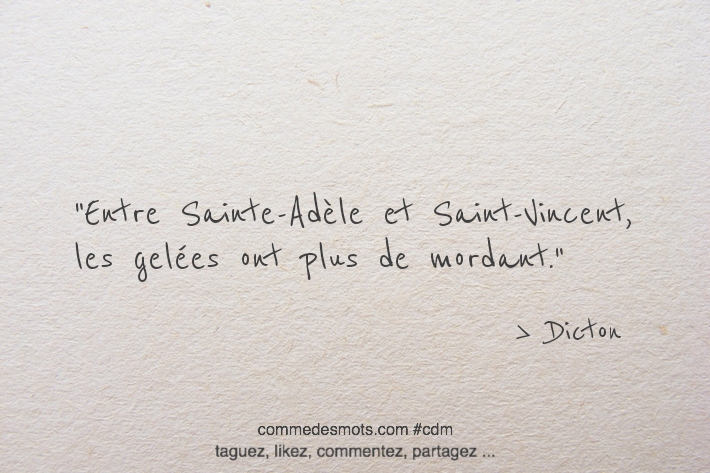 "Entre Sainte-Adèle et Saint-Vincent,
les gelées ont plus de mordant."
> Dicton
commedesmots.com #cdm
taguez, likez, commentez, partagez ...